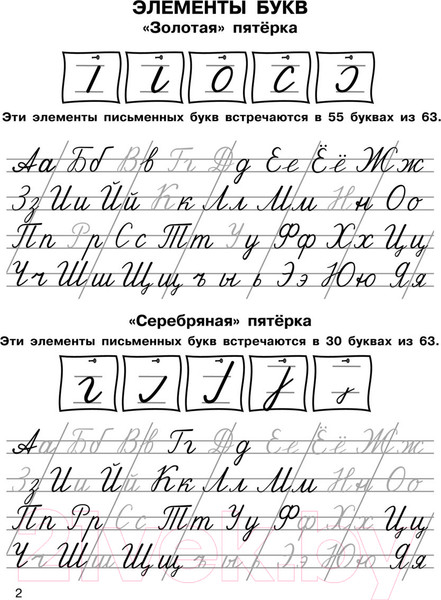 ЭЛЕМЕНТЫ БУКВ
«Золотая» пятёрка
Эти элементы письменных букв встречаются в 55 буквах из 63.
Аа Бб Вв Гг Дд Ее Ёё Жж
Зз Ии Йй Кк Лл Мм Нн Оо
Пп Рр Сс Тт Уу Фф Хх Цц
Чч Шш Щщ ъ ы ь Ээ Юю Яя
«Серебряная» пятёрка
Эти элементы письменных букв встречаются в 30 буквах из 63.
Аа Бб Вв Гг Дд Ее Ёё Жж
Зз Ии Йй Кк Лл Мм Нн Оо
Пп Рр Сс Тт Уу Фф Хх Цц
Чч Шш Щщ ъ ы ь Ээ Юю Яя
2